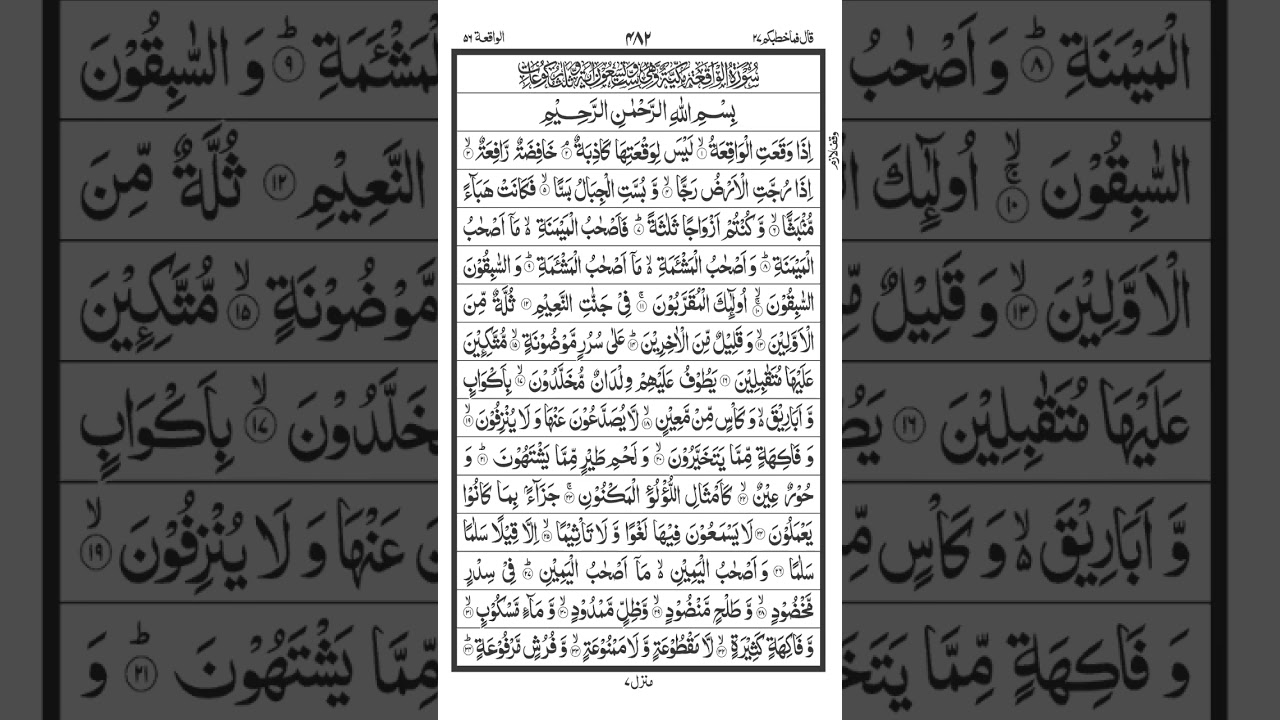 قال فما خطبكم ٢٧
٤٨٢
الواقعة ٥٦
بِسْمِ اللّٰهِ الرَّحْمٰنِ الرَّحِيْمِ
اِذَا وَقَعَتِ الْوَاقِعَةُ ۙ﴿١﴾ لَيْسَ لِوَقْعَتِهَا كَاذِبَةٌ ۘ﴿٢﴾ خَافِضَةٌ رَّافِعَةٌ ۙ﴿٣﴾
وقف لازم
اِذَا رُجَّتِ الْاَرْضُ رَجًّا ۙ﴿٤﴾ وَّ بُسَّتِ الْجِبَالُ بَسًّا ۙ﴿٥﴾ فَكَانَتْ هَبَآءً
مُّنْۢبَثًّا ۙ﴿٦﴾ وَّ كُنْتُمْ اَزْوَاجًا ثَلٰثَةً ؕ﴿٧﴾ فَاَصْحٰبُ الْمَيْمَنَةِ ۙ۬ مَاۤ اَصْحٰبُ
الْمَيْمَنَةِ ؕ﴿٨﴾ وَ اَصْحٰبُ الْمَشْـَٔمَةِ ۙ۬ مَاۤ اَصْحٰبُ الْمَشْـَٔمَةِ ؕ﴿٩﴾ وَ السّٰبِقُوْنَ
السّٰبِقُوْنَ ۚۙ﴿١٠﴾ اُولٰٓئِكَ الْمُقَرَّبُوْنَ ۚ﴿١١﴾ فِيْ جَنّٰتِ النَّعِيْمِ ﴿١٢﴾ ثُلَّةٌ مِّنَ
الْاَوَّلِيْنَ ۙ﴿١٣﴾ وَ قَلِيْلٌ مِّنَ الْاٰخِرِيْنَ ؕ﴿١٤﴾ عَلٰى سُرُرٍ مَّوْضُوْنَةٍ ۙ﴿١٥﴾ مُّتَّكِـِٕيْنَ
عَلَيْهَا مُتَقٰبِلِيْنَ ﴿١٦﴾ يَطُوْفُ عَلَيْهِمْ وِلْدَانٌ مُّخَلَّدُوْنَ ۙ﴿١٧﴾ بِاَكْوَابٍ
وَّ اَبَارِيْقَ ۙ۬ وَ كَاْسٍ مِّنْ مَّعِيْنٍ ۙ﴿١٨﴾ لَّا يُصَدَّعُوْنَ عَنْهَا وَ لَا يُنْزِفُوْنَ ۙ﴿١٩﴾
وَ فَاكِهَةٍ مِّمَّا يَتَخَيَّرُوْنَ ۙ﴿٢٠﴾ وَ لَحْمِ طَيْرٍ مِّمَّا يَشْتَهُوْنَ ؕ﴿٢١﴾ وَ
حُوْرٌ عِيْنٌ ۙ﴿٢٢﴾ كَاَمْثَالِ اللُّؤْلُؤِ الْمَكْنُوْنِ ۚ﴿٢٣﴾ جَزَآءًۢ بِمَا كَانُوْا
يَعْمَلُوْنَ ﴿٢٤﴾ لَا يَسْمَعُوْنَ فِيْهَا لَغْوًا وَّ لَا تَاْثِيْمًا ۙ﴿٢٥﴾ اِلَّا قِيْلًا سَلٰمًا
سَلٰمًا ﴿٢٦﴾ وَ اَصْحٰبُ الْيَمِيْنِ ۙ۬ مَاۤ اَصْحٰبُ الْيَمِيْنِ ؕ﴿٢٧﴾ فِيْ سِدْرٍ
مَّخْضُوْدٍ ۙ﴿٢٨﴾ وَّ طَلْحٍ مَّنْضُوْدٍ ۙ﴿٢٩﴾ وَّ ظِلٍّ مَّمْدُوْدٍ ۙ﴿٣٠﴾ وَّ مَآءٍ مَّسْكُوْبٍ ۙ﴿٣١﴾
وَّ فَاكِهَةٍ كَثِيْرَةٍ ۙ﴿٣٢﴾ لَّا مَقْطُوْعَةٍ وَّ لَا مَمْنُوْعَةٍ ۙ﴿٣٣﴾ وَّ فُرُشٍ مَّرْفُوْعَةٍ ؕ﴿٣٤﴾
منزل ٧